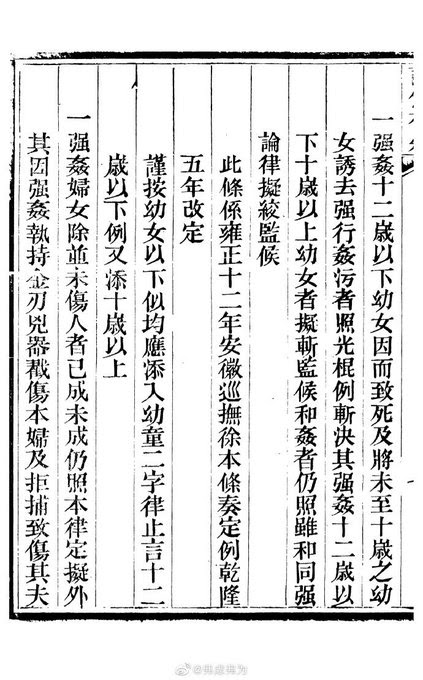 一强姦十二歲以下幼女因而致死及將未至十歲之幼
女誘去强行姦污者照光棍例斬決其强姦十二歲以
下十歲以上幼女者擬斬監候和姦者仍照雖和同强
論律擬絞監候
此條係雍正十二年安徽巡撫徐本條奏定例乾隆
五年改定
謹按幼女以下似均應添入幼童二字律止言十二
歲以下例又添十歲以上
一强姦婦女除並未傷人者已成未成仍照本律定擬外
其因强姦執持金刃兇器戳傷本婦及拒捕致傷其夫